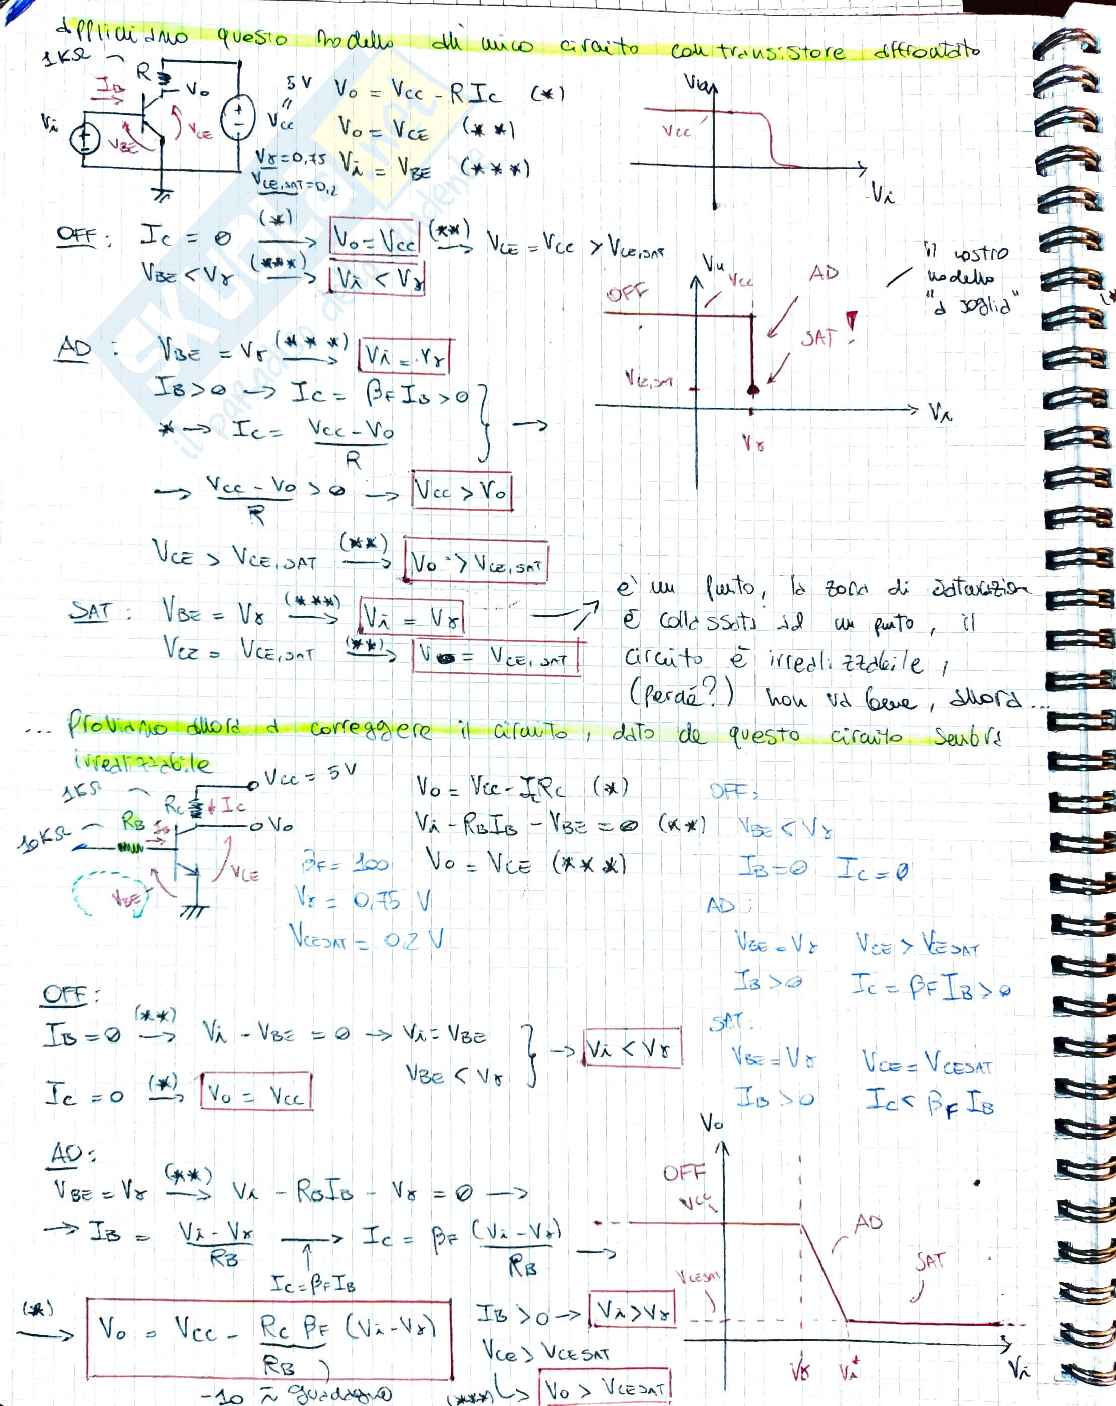 Applichiamo questo modello all'unico circuito con transistore affrontato
1KΩ
R
Vo
IB
Vi
VBE
VCE
5V
VCC
Vγ = 0,75
VCE,SAT = 0,2
Vo = VCC - R IC (*)
Vo = VCE (**)
Vi = VBE (***)
VCC
Vi
OFF: IC = 0 (*) → Vo = VCC (**) → VCE = VCC > VCE,SAT
VBE < Vγ (***) → Vi < Vγ
Vu
VCC
OFF
AD
SAT!
VCE,SAT
Vγ
Vi
il nostro
modello
"a soglia"
AD: VBE = Vγ (***) → Vi = Vγ
IB > 0 → IC = βF IB > 0
* → IC = VCC - Vo / R } →
→ VCC - Vo / R > 0 → VCC > Vo
VCE > VCE,SAT (**) → Vo > VCE,SAT
SAT: VBE = Vγ (***) → Vi = Vγ
VCE = VCE,SAT (**) → Vo = VCE,SAT
è un punto, la zona di saturazione
è collassata ad un punto, il
circuito è irrealizzabile,
(perché?) non va bene, allora...
... Proviamo allora a correggere il circuito, dato che questo circuito sembra
irrealizzabile
1KΩ
RC
IC
VCC = 5V
Vo
10KΩ
RB
VBE
VCE
βF = 100
Vγ = 0,75 V
VCESAT = 0.2 V
Vo = VCC - IC RC (*)
Vi - RB IB - VBE = 0 (**)
Vo = VCE (***)
OFF:
VBE < Vγ
IB = 0 IC = 0
AD:
VBE = Vγ VCE > VCESAT
IB > 0 IC = βF IB > 0
SAT:
VBE = Vγ VCE = VCESAT
IB > 0 IC < βF IB
OFF:
IB = 0 (**) → Vi - VBE = 0 → Vi = VBE
VBE < Vγ } → Vi < Vγ
IC = 0 (*) → Vo = VCC
AD:
VBE = Vγ (**) → Vi - RB IB - Vγ = 0 →
→ IB = Vi - Vγ / RB → IC = βF (Vi - Vγ) / RB →
IC = βF IB
(*) → Vo = VCC - RC βF / RB (Vi - Vγ)
-10 ~ guadagno
IB > 0 → Vi > Vγ
VCE > VCESAT
(***) → Vo > VCESAT
Vo
OFF
VCC
AD
SAT
VCESAT
Vγ
Vi*
Vi